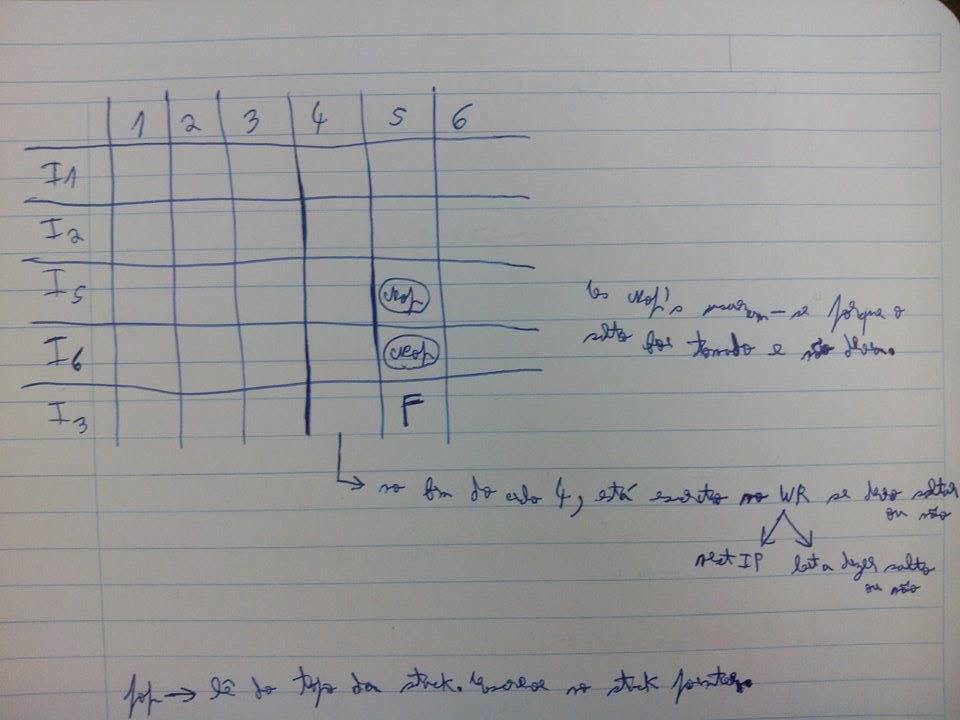 1 2 3 4 5 6
I1
I2
I5 nop
I6 nop
I3 F
Os nop's usaram-se porque o
salto foi tomado e não devia.
no fim do ciclo 4, está escrito no WR se devo saltar
ou não
next IP bit a dizer salto
ou não
pop → lê do topo da stack. escreve no stack pointer.